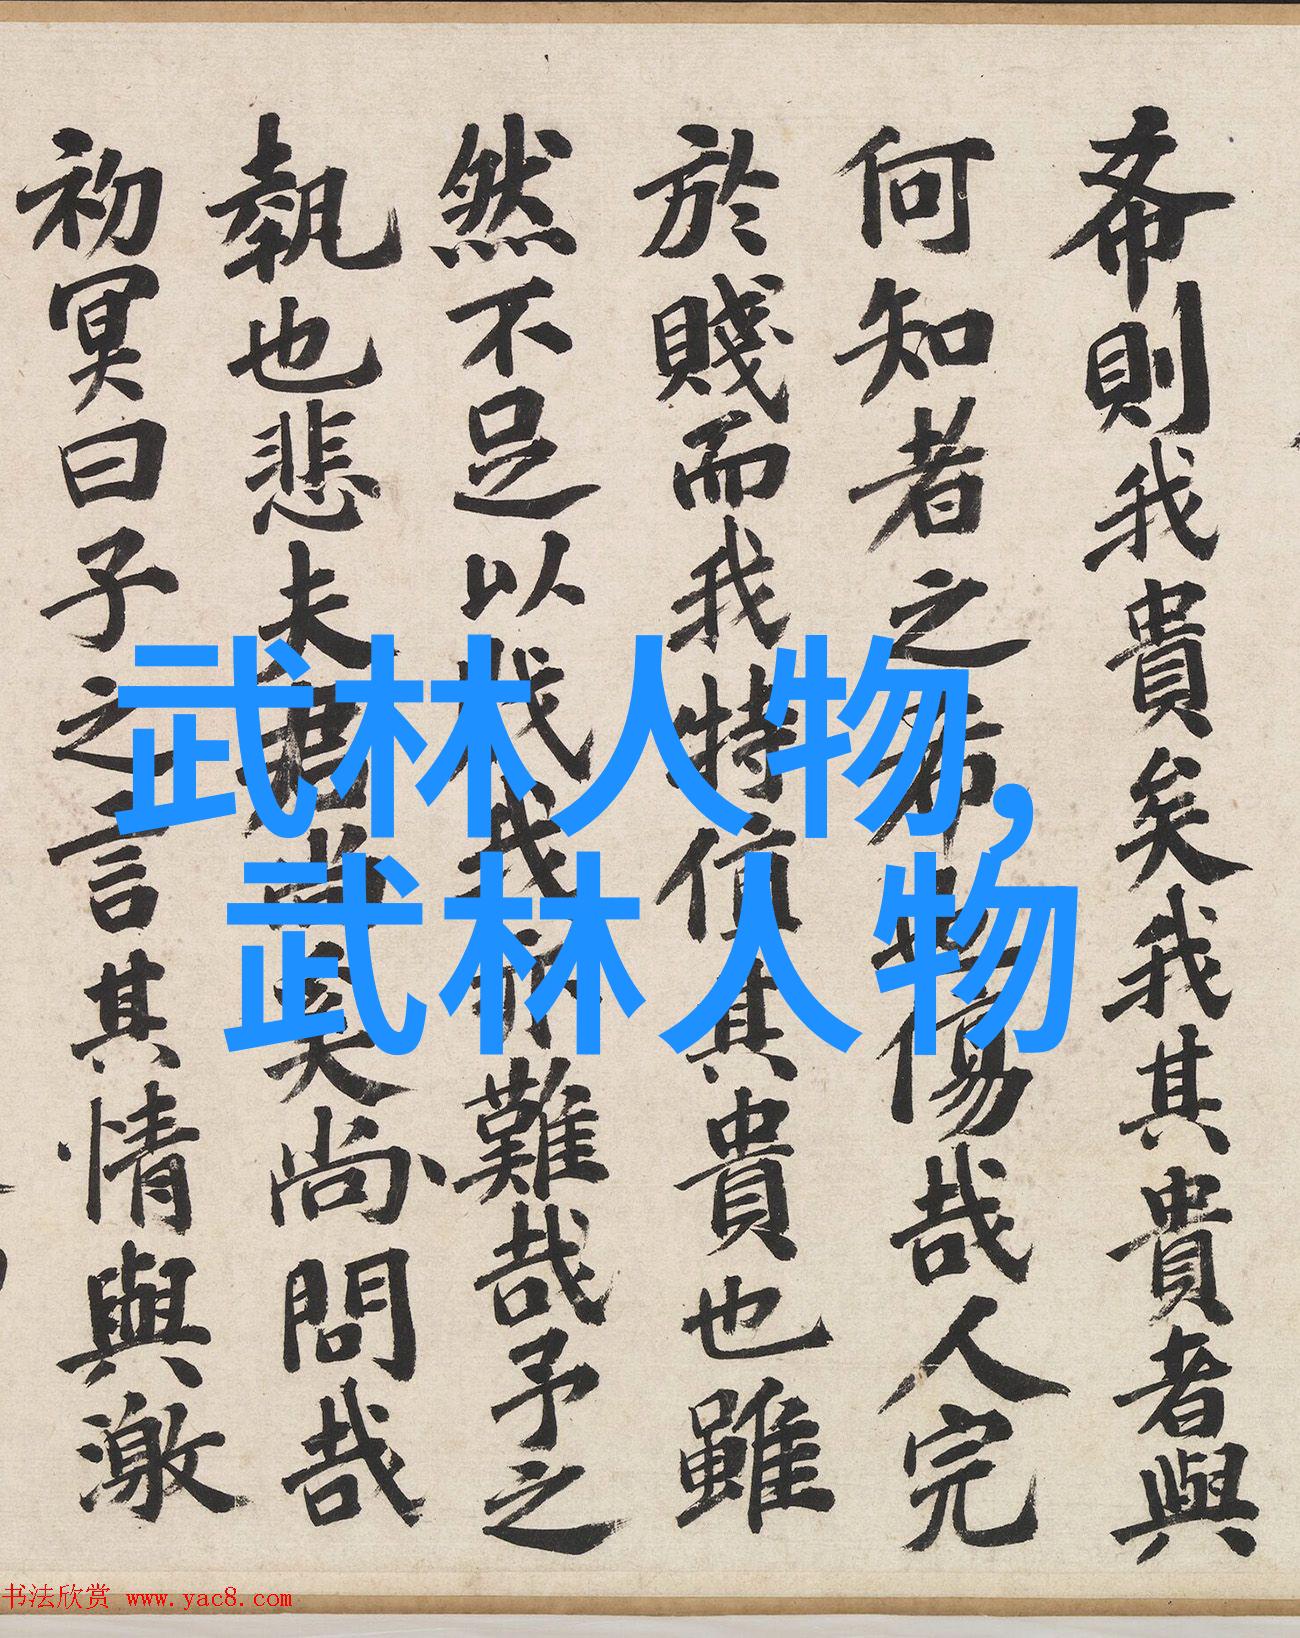 武林人物,
武林人物
希則我貴矣我其貴者與
何知者之希也傷哉人完
於賤而我特信其貴也雖
然不足以我難哉予之
執也悲夫矣尚問哉
初冥曰子之言其情與激
书法欣赏 www.yac8.com